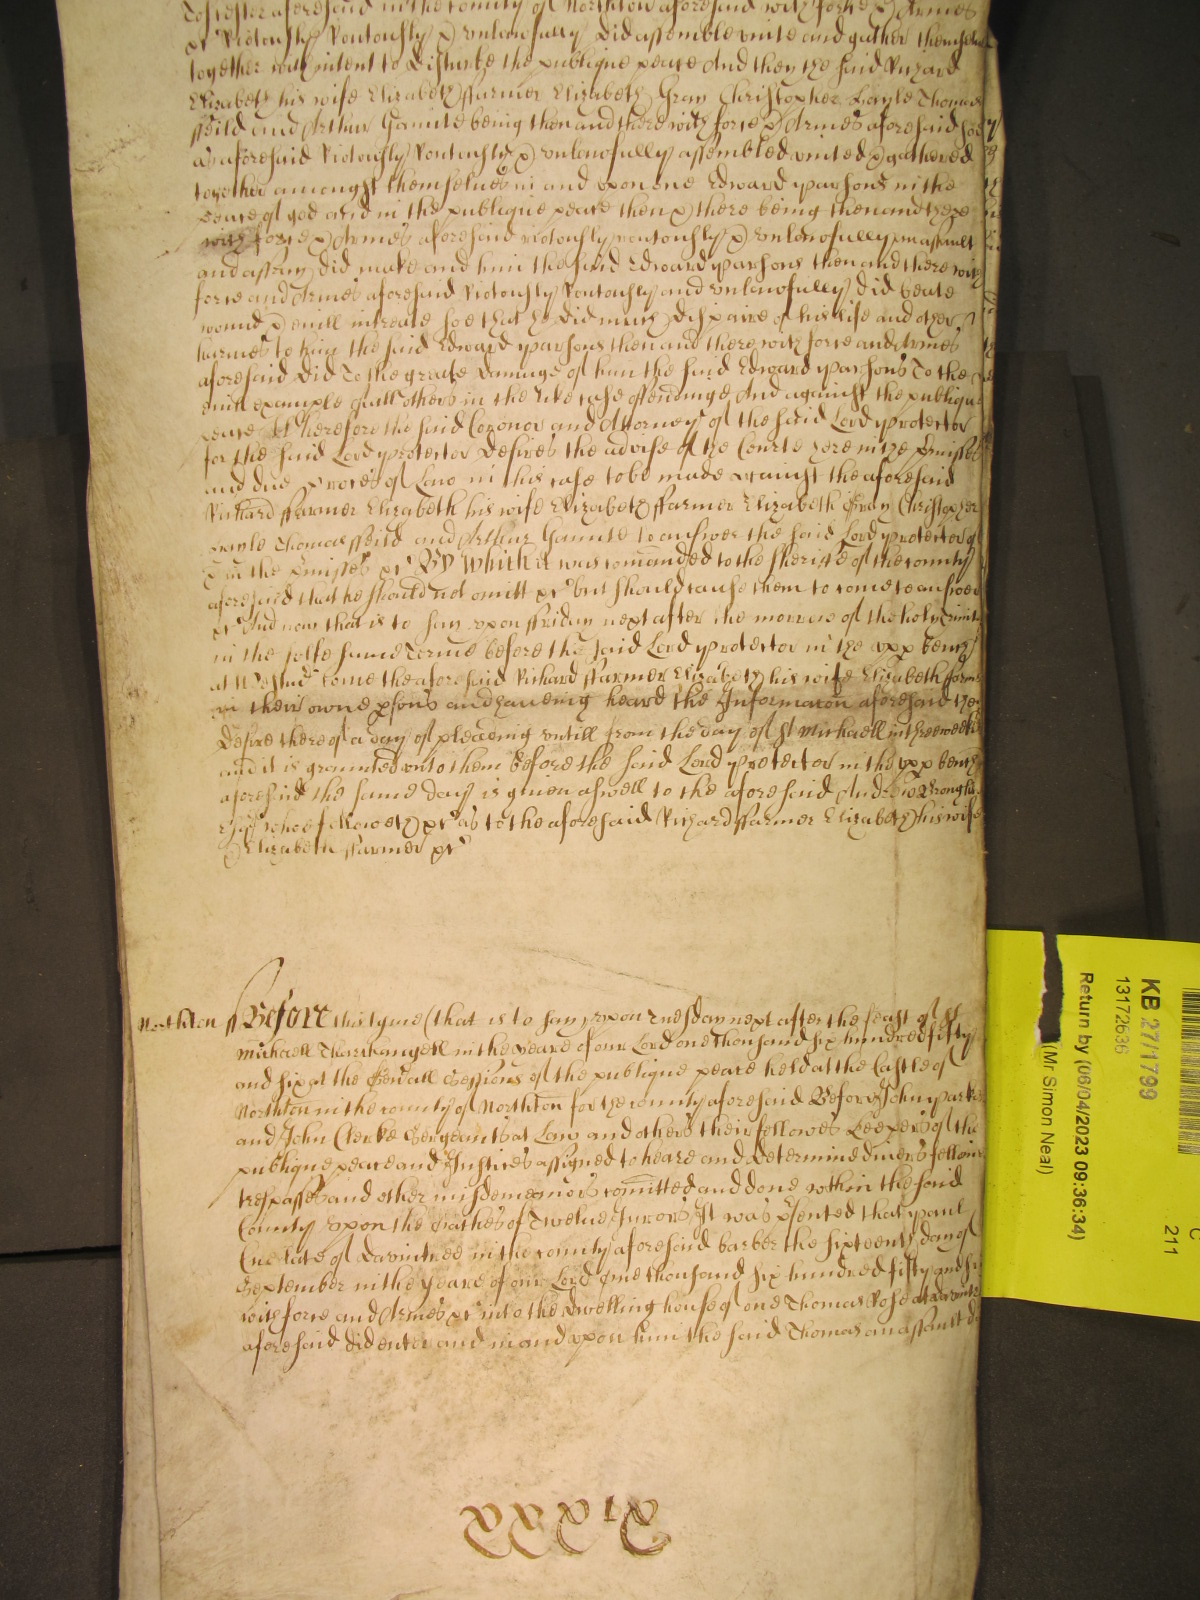 Tocester aforesaid in the county of Northton aforesaid with force & Armes
&c Riotously Routously & unlawfully did assemble unite and gather themselves
together with intent to disturbe the publique peace And they the said Richard
Elizabeth his wife Elizabeth ffarmer Elizabeth Gray Christopher Thomas
ffeild and Arthur Gaunte being then and there with force & Armes aforesaid soe
as aforesaid Riotously Routously & unlawfully assembled united & gathered
together amongst themselves in and upon one Edward Parsons in the
peace of god and in the publique peace then & there being then and there
with force & Armes aforesaid riotously routously & unlawfully an assault
and affray did make and him the said Edward Parsons then and there with
force and Armes aforesaid Riotously Routously and unlawfully did beate
wound & evill intreate soe that he did much dispaire of his life and other
harmes to him the said Edward Parsons then and there with force and Armes
aforesaid did To the greate damage of him the said Edward Parsons To the
evill example of all others in the like case offendinge And against the publique
peace Wherefore the said Coronor and Attorney of the said Lord Protector
for the said Lord Protector desires the advise of the Courte here in the Pmisses
and due Proces of Law in this case to be made against the aforesaid
Richard ffarmer Elizabeth his wife Elizabeth ffarmer Elizabeth Gray Christopher
Thomas ffeild and Arthur Gaunte to answer the said Lord Protector of
& in the Pmisses &c By which it was comanded to the Sheriffe of the county
aforesaid that he should not omitt &c but should cause them to come to answer
&c And now that is to say upon ffriday next after the morrow of the holy Trinity
in the selfe same Terme before the said Lord Protector in the upp bench
at Westmr come the aforesaid Richard ffarmer Elizabeth his wife Elizabeth ffarmer
in their owne psons and haveing heard the Informacon aforesaid they
desire thereof a day of pleading untill from the day of St Michaell in three weekes
and it is graunted unto them before the said Lord Protector in the upp bench
aforesaid the same day is given aswell to the aforesaid Andrew Broughton
Esqr who followeth &c as to the aforesaid Richard ffarmer Elizabeth his wife
& Elizabeth ffarmer &c
Northton ss Before this tyme (that is to say) upon Tuesday next after the feast of St
Michaell Tharchangell in the yeare of our Lord one thousand six hundred fifty
and six at the Genall Sessions of the publique peace held at the Castle of
Northton in the county of Northton for the county aforesaid Before John Parker
and John Clerke Sergeants at Law and others their fellowes Keepers of the
publique peace and Justices assigned to heare and determine divers fellonies
trespasses and other misdemeanors comitted and done within the said
County upon the Oathes of Twelve Jurors It was psented that Paul
late of Davintree in the county aforesaid barber the sixteenth day of
September in the yeare of our Lord one thousand six hundred fifty and six
with force and Armes &c into the dwelling house of one Thomas Rose at Davintree
aforesaid did enter and in and upon him the said Thomas an assault did
KB 27/1799
13172636
Return by (06/04/2023 09:36:34)
(Mr Simon Neal)
C
211